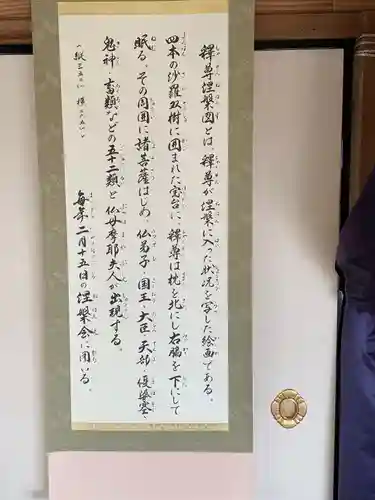 釋尊涅槃図とは、釋尊が涅槃に入った状況を写した絵画である。
四本の沙羅双樹に囲まれた宝台に、釋尊は枕を北にし右脇を下にして
眠る。その周囲に諸菩薩はじめ、仏弟子・国王・大臣・天部・優婆塞・
鬼神・畜類などの五十二類と仏母摩耶夫人が出現する。
毎年二月十五日の涅槃会に用いる。